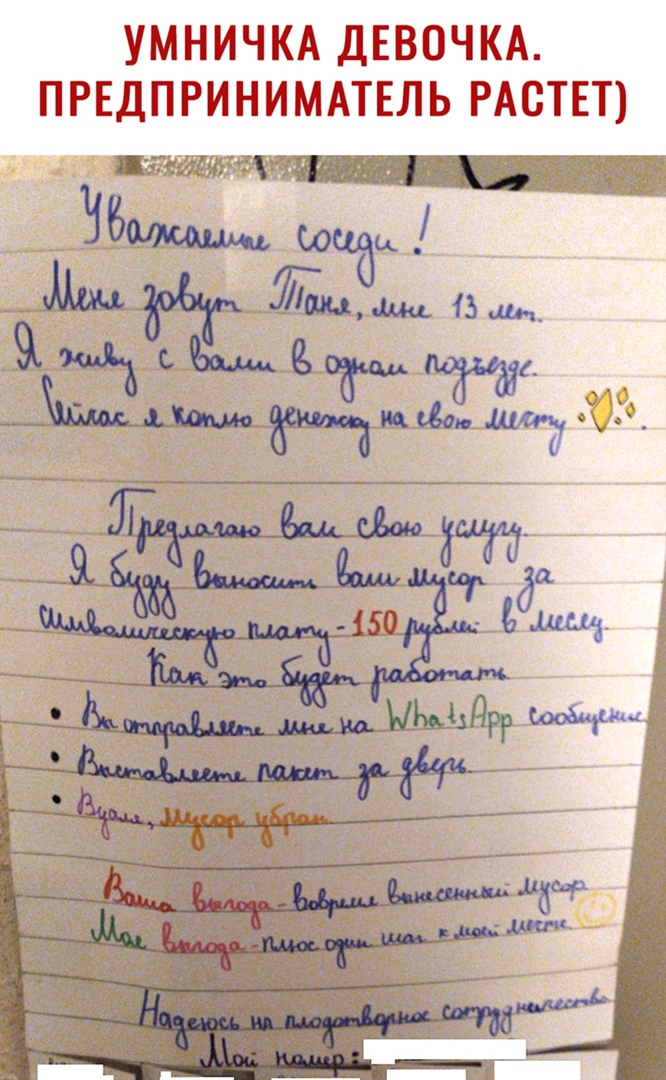 УМНИЧКА ДЕВОЧКА.
ПРЕДПРИНИМАТЕЛЬ РАСТЕТ)
Уважаемые соседи!
Меня зовут Таня, мне 13 лет.
Я живу с вами в одном подъезде.
Сейчас я коплю денежку на свою мечту.
Предлагаю вам свою услугу.
Я буду выносить ваш мусор за
символическую плату - 150 рублей в месяц.
Как это будет работать
• Вы отправляете мне на WhatsApp сообщение
• Выставляете пакет за дверь.
• Вуаля, мусор убран
Ваша выгода - вовремя вынесенный мусор
Моя выгода - плюс один шаг к моей мечте.
Надеюсь на плодотворное сотрудничество
Мой номер: